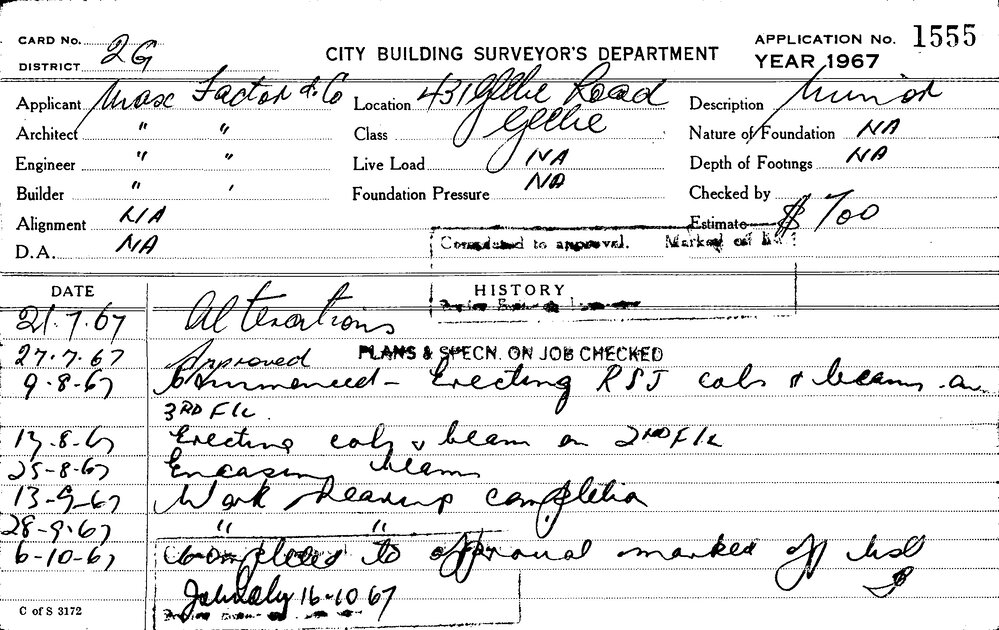 CARD No.
DISTRICT 2G
CITY BUILDING SURVEYOR'S DEPARTMENT
APPLICATION No. 1555
YEAR 1967
Applicant Max Factor & Co
Location 431 Glebe Road
Glebe
Description Minor
Architect " "
Class
Nature of Foundation NA
Engineer " "
Live Load NA
Depth of Footings NA
Builder " "
Foundation Pressure NA
Checked by
Alignment NA
Estimate $700
D.A. NA
Completed to approval. Marked off
DATE
HISTORY
21.7.67 Alterations
27.7.67 Approved PLANS & SPECN. ON JOB CHECKED
9-8-67 Commenced - Erecting RSJ cols & beams on
3RD Flr.
17-8-67 Erecting cols & beam on 2ND Flr
25-8-67 Encasing beams
13-9-67 Work nearing completion
28-9-67 " "
6-10-67 Completed to approval marked off list
16-10 67
C of S 3172